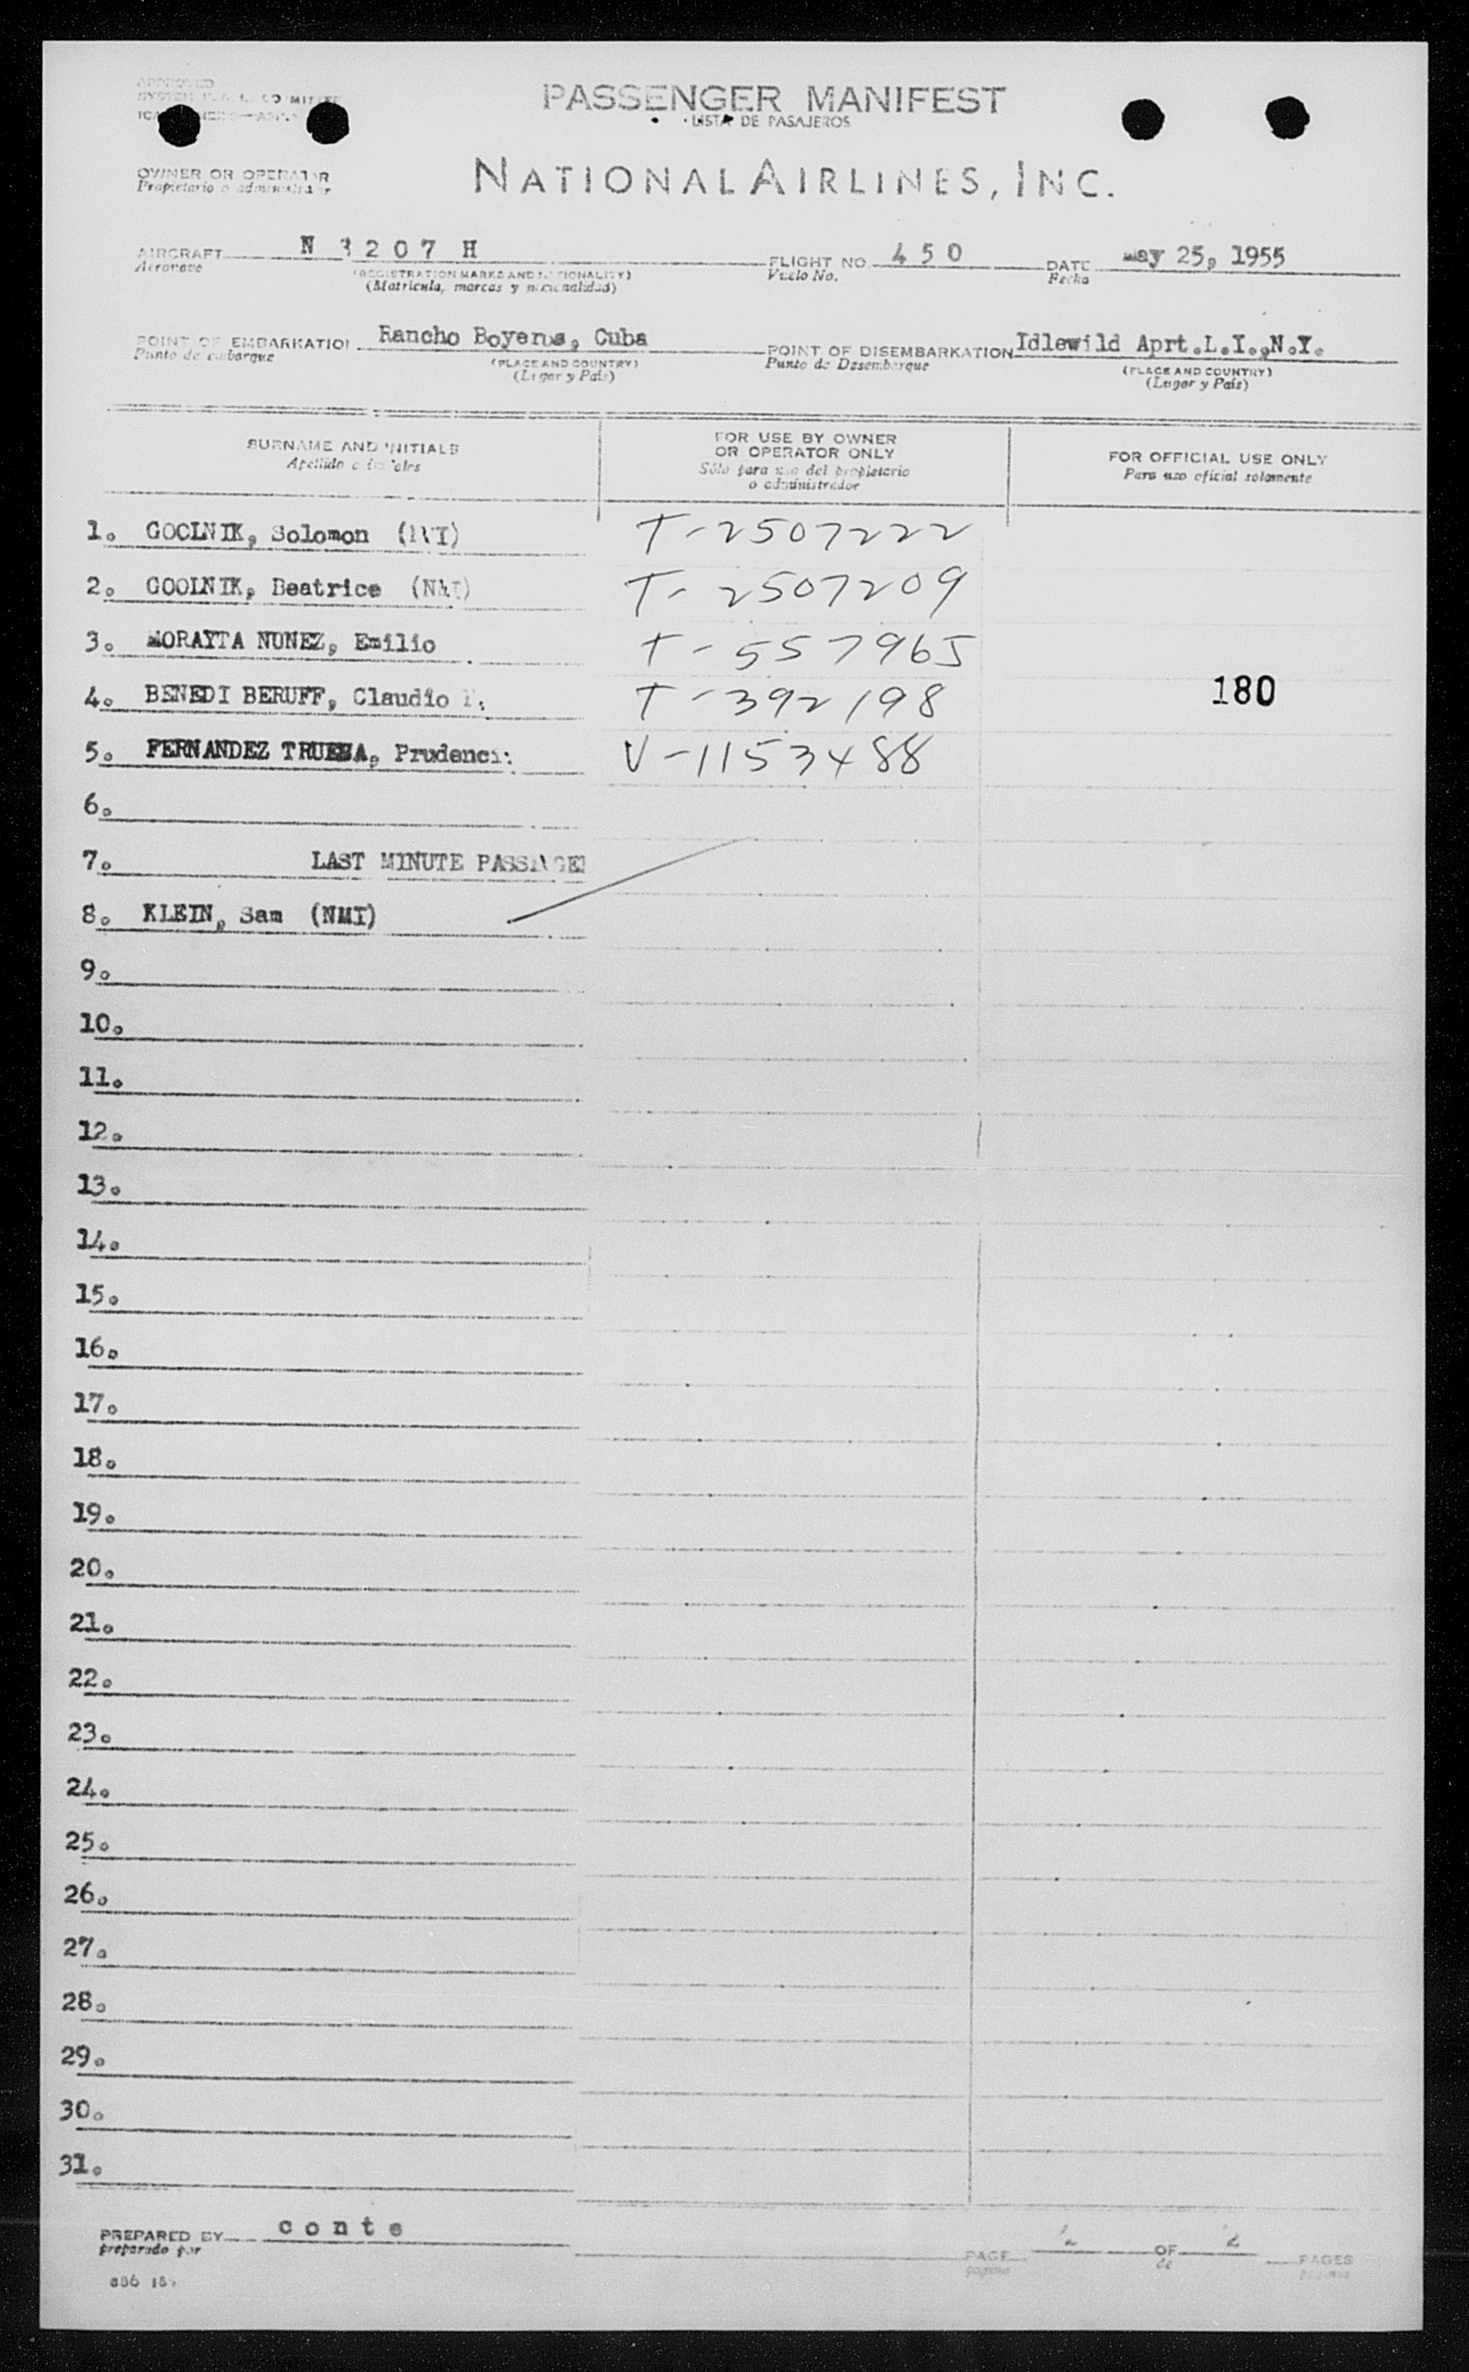 APPROVED
PASSENGER MANIFEST
LISTA DE PASAJEROS
OWNER OR OPERATOR
Propietario o administrador
NATIONAL AIRLINES, INC.
AIRCRAFT N 3207 H FLIGHT NO. 450 DATE May 25, 1955
Aeronave (REGISTRATION MARKS AND NATIONALITY) Vuelo No. Fecha
(Matrícula, marcas y nacionalidad)
POINT OF EMBARKATION Rancho Boyeros, Cuba POINT OF DISEMBARKATION Idlewild Aprt.L.I.,N.Y.
Punto de embarque (PLACE AND COUNTRY) Punto de Desembarque (PLACE AND COUNTRY)
(Lugar y País) (Lugar y País)
SURNAME AND INITIALS FOR USE BY OWNER OR OPERATOR ONLY FOR OFFICIAL USE ONLY
Apellido e iniciales Sólo para uso del propietario o administrador Para uso oficial solamente
1. GOOLNIK, Solomon (NMI) T-2507222
2. GOOLNIK, Beatrice (NMI) T-2507209
3. MORAYTA NUNEZ, Emilio T-557965
4. BENEDI BERUFF, Claudio F. T-392198 180
5. FERNANDEZ TRUEBA, Prudenci V-1153488
6.
7. LAST MINUTE PASSAGE
8. KLEIN, Sam (NMI)
9.
10.
11.
12.
13.
14.
15.
16.
17.
18.
19.
20.
21.
22.
23.
24.
25.
26.
27.
28.
29.
30.
31.
PREPARED BY conte
preparado por PAGE 2 OF 2 PAGES
página de páginas